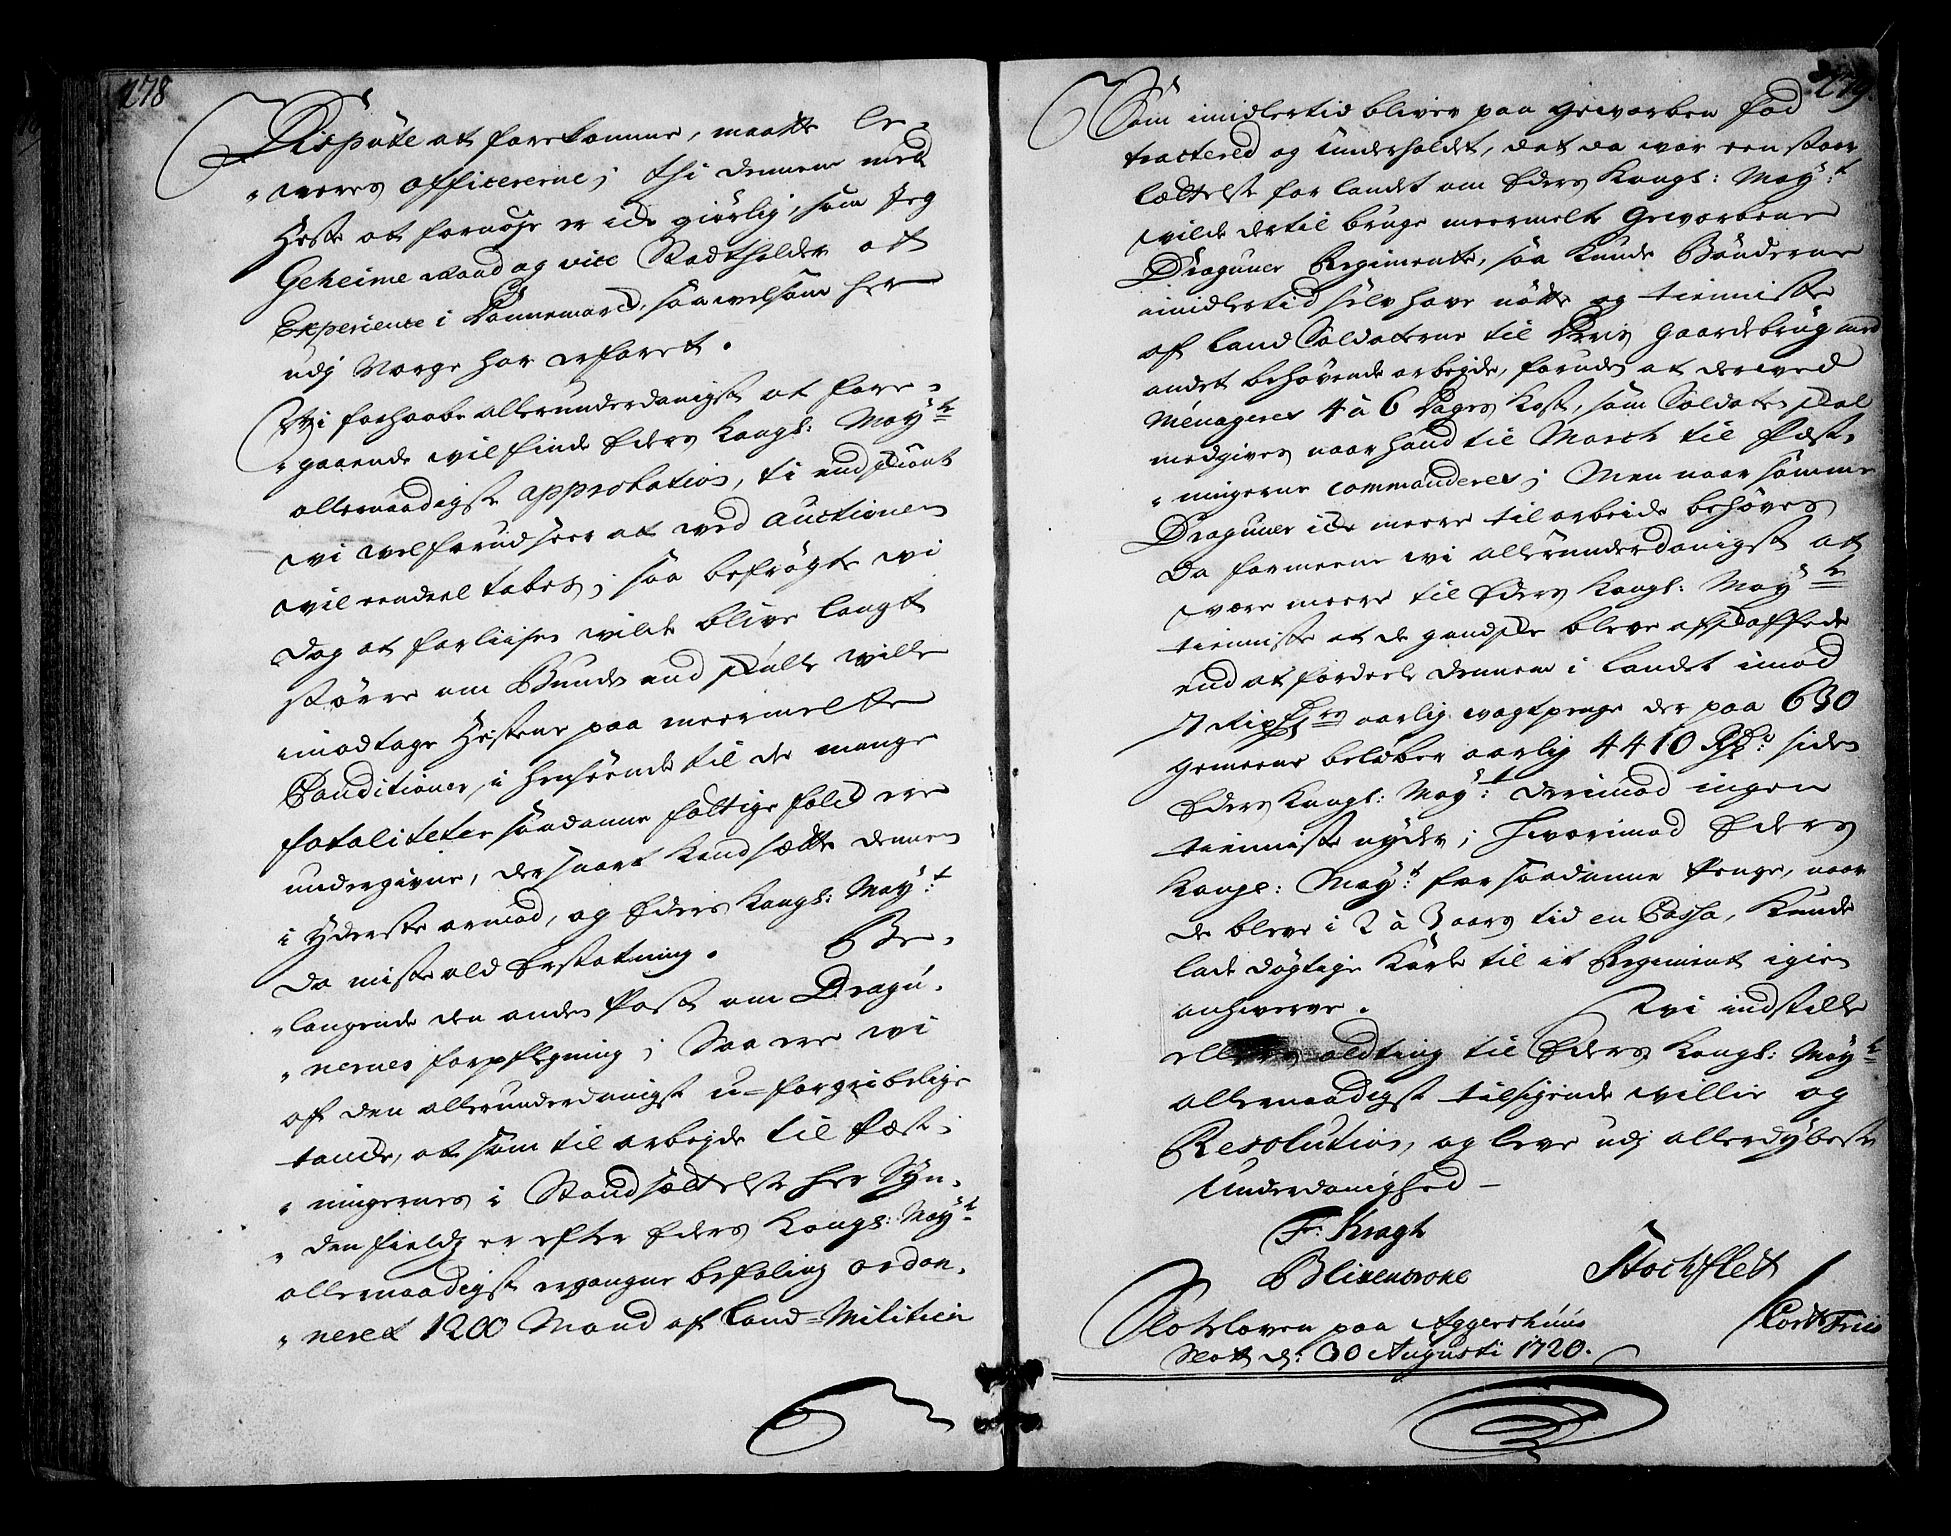 278
Dispúte at forekomme, maatte le-
-veres officererne; thi dennem med
Heste at fornøje er icke giørlig, som Jeg
Geheime Raad og vice Stadtholder af
Experience i Dannemarck, saavelsom her
udj Norge har erfaret.
Wi forhaabe allerunderdanigst at fore-
-gaaende vil finde Eders Kongl: May:ts
allernaadigste approbation, ti endskiønt
wi vel forud seer at ved auctionen
vil eendeel tabes, saa befrøgte wi
dog at forliisen vilde blive langt
større om Bunden end skulle wille
imodtage Hestene paa meermelte
Conditioner, i henseende til de mange
fataliteter saadanne fattige folck ere
undergivne, der snart kand sætte dennem
i Yderste armod, og Eders Kongl: May:t
da miste ald Erstatning. Be-
-langende den anden Post om Dragú-
-nernes forpflegning; Saa ere wi
af den allerunderdanigst u-forgribelige
tancke, at som til arbejde til Fæst-
-ningernes i Standsættelse her Syn-
-den fieldz er efter Eders Kongl: May:ts
allernaadigst ergangne befaling ordon-
-neret 1200 Mand af Land-Militien
279.
Som imidlertid bliver paa gevorben fod
tracteret og underholdet, det da var een stoor
lættelse for landet om Eders Kongl: May:t
vilde dertil bruge meermelte Gevorbene
Draguner Regimente, saa kunde Bønderne
imidlertid selv have nøtte og tienniste
af Land Soldaterne til deris gaardebrúg med
andet behøvende arbejde, foruden at derved
Ménageres 4 à 6 dages kost, som Soldaten skal
medgives naar hand til March til Fæst-
-ningerne commanderes; Men naar samme
Draguner icke meere til arbeide behøves
Da formeene wi allerunderdanigst at
være meere til Eders Kongl: May:ts
tienniste at de gandske bleve afskaffede
end at fordeele dennem i landet imod
7 Rixdlrs aarlig vagtpenge der paa 630
gemeene beløber aarlig 4410 Rdr: siden
Eders Kongl: May:t derimod ingen
tienniste nyder; hvorimod Eders
Kongl: May:t for saadanne Penge, naar
de bleve i 2 à 3 aars tid en Cassa, kunde
lade døgtige karle til it Regiment igien
anhverve. Wi indstille
ellers alting til Eders Kongl: May:ts
allernaadigst tilsigende villie og
Resolution, og leve udj allerdybeste
Underdanighed -
Fr: Kragh
Blixencrone Stochfledt
Slotsloven paa Aggershúús Cort Friis
Slott d: 30 Augusti 1720.